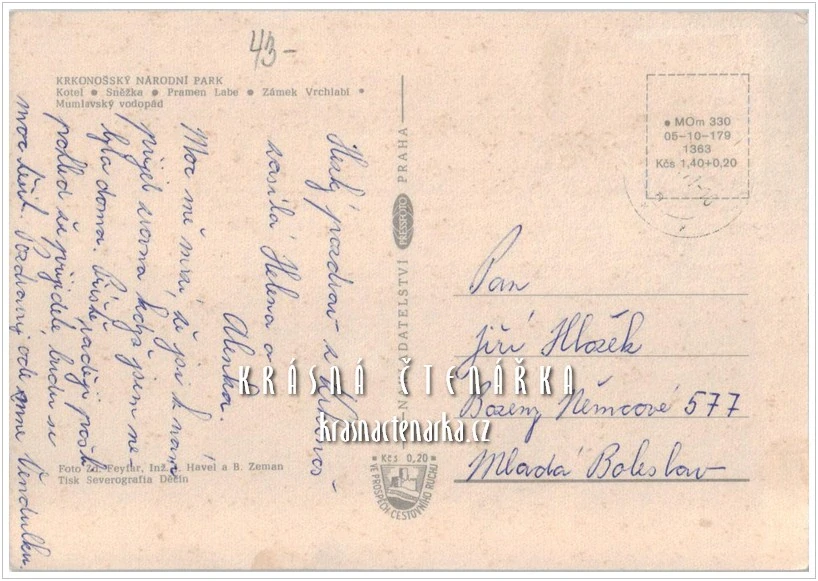 43-
KRKONOŠSKÝ NÁRODNÍ PARK
Kotel • Sněžka • Pramen Labe • Zámek Vrchlabí •
Mumlavský vodopád
Hezký pozdrav z Krkonoš-
zasílá Helena a
Alenka.
Moc mě mrzí, že jsi k nám
přijel zrovna když jsem ne-
byla doma. Příště raději pošli
pohled že přijedeš budu se
moc těšit. Pozdravuj ode mne Vendulku.
Foto Zd. Feyfar, Inž. Havel a B. Zeman
Tisk Severografia Děčín
NAKLADATELSTVÍ PRESSFOTO PRAHA
• Kčs 0,20 •
VE PROSPĚCH CESTOVNÍHO RUCHU
• MOm 330
05-10-179
1363
Kčs 1,40+0,20
Pan
Jiří Hlozek
Bozeny Němcové 577
Mladá Boleslav
KRÁSNÁ ČTENÁŘKA
krasnactenarka.cz